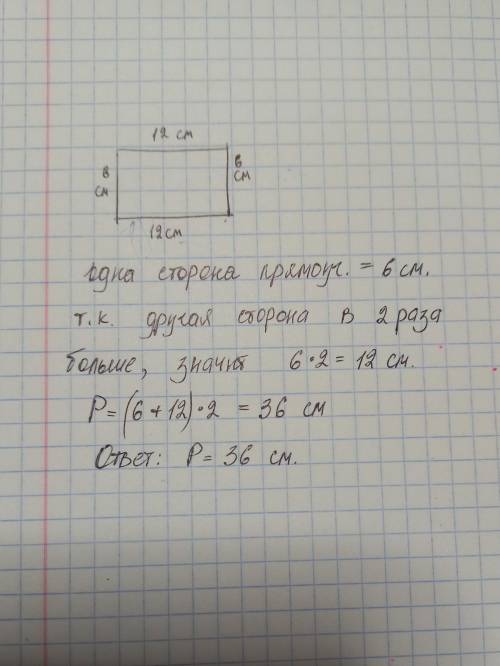 12 см
6 см
6 см
12 см
одна сторона прямоуг. = 6 см.
т.к. другая сторона в 2 раза
больше, значит 6·2 = 12 см.
P = (6 + 12)·2 = 36 см
Ответ: P = 36 см.